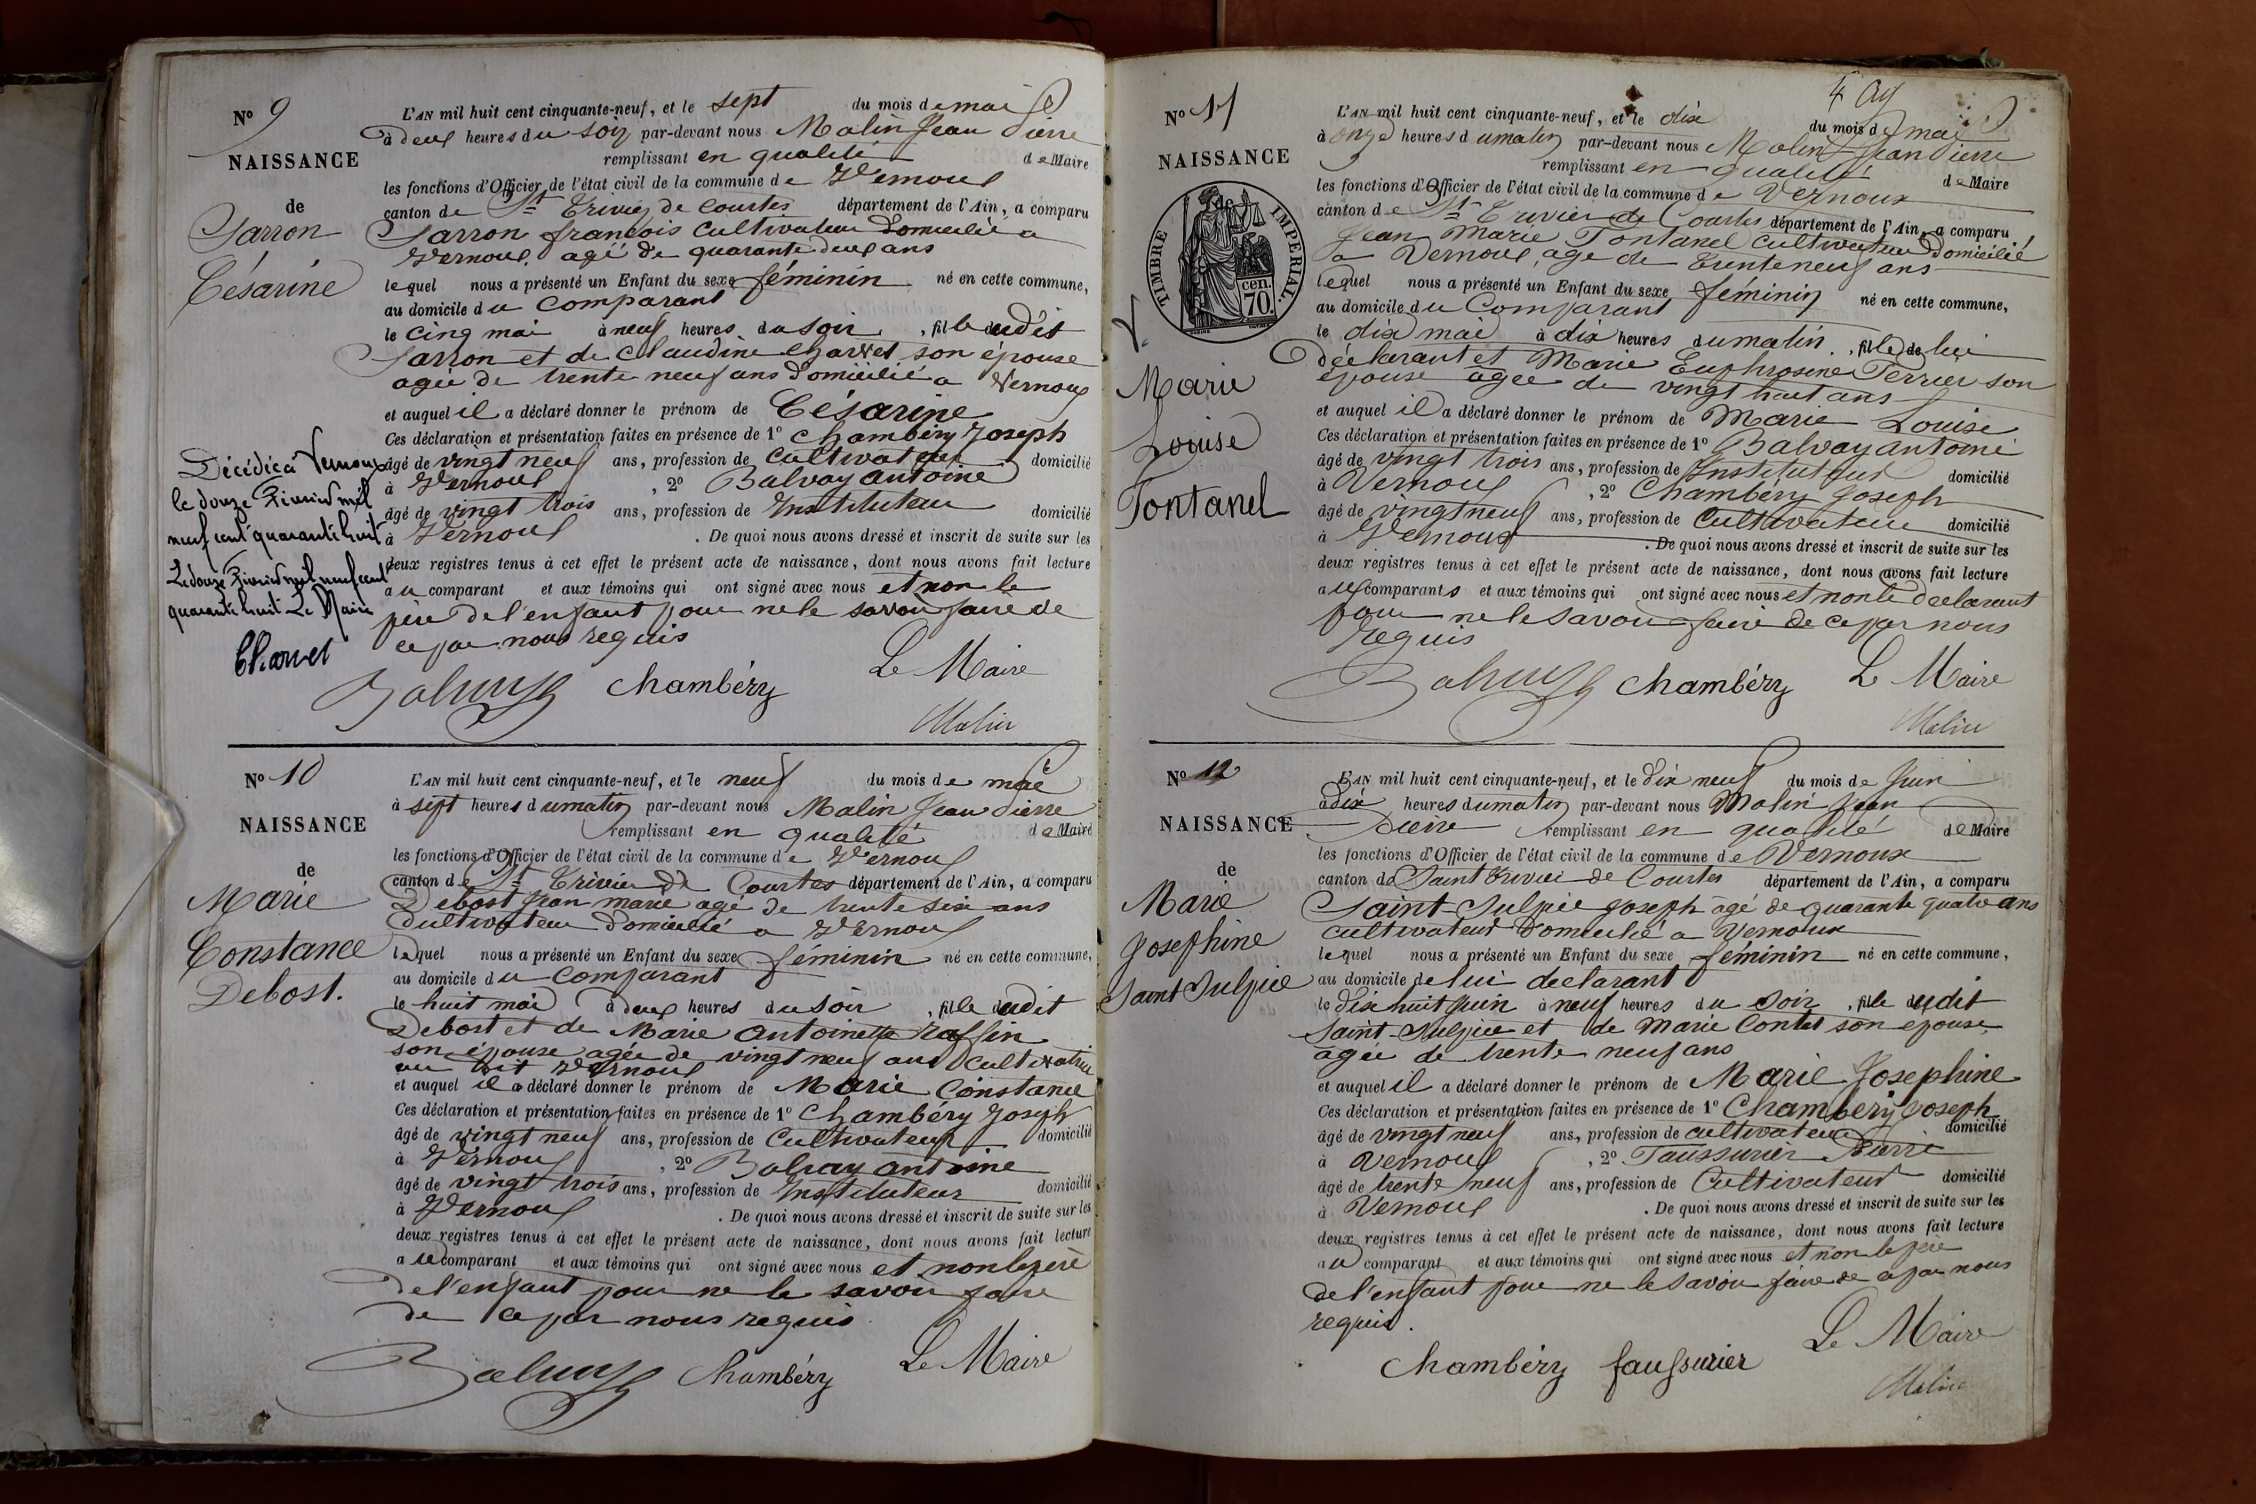 N° 9
NAISSANCE
de
Sarron
Césarine
L'AN mil huit cent cinquante-neuf, et le sept du mois de mai
à deux heures du soir par-devant nous Malin Jean Pierre
remplissant en qualité de Maire
les fonctions d'Officier de l'état civil de la commune de Vernoux
canton de St Trivier de Courtes département de l'Ain, a comparu
Sarron françois cultivateur domicilié a
Vernoux, agé de quarante deux ans
lequel nous a présenté un Enfant du sexe féminin né en cette commune,
au domicile du comparant
le cinq mai à neuf heures du soir, fille dudit
Sarron et de Claudine Charvet son épouse
agée de trente neuf ans domicilié a Vernoux
et auquel il a déclaré donner le prénom de Césarine
Ces déclaration et présentation faites en présence de 1° Chambéry Joseph
âgé de vingt neuf ans, profession de Cultivateur domicilié
à Vernoux, 2° Balvay antoine
âgé de vingt trois ans, profession de Instituteur domicilié
à Vernoux. De quoi nous avons dressé et inscrit de suite sur les
deux registres tenus à cet effet le présent acte de naissance, dont nous avons fait lecture
au comparant et aux témoins qui ont signé avec nous et non le
père de l'enfant pour ne le savoir faire de
ce par nous requis
Balvay Chambéry Le Maire
Malin
Décédée à Vernoux
le douze Février mil
neuf cent quarante huit
Le douze Février mil neuf cent
quarante huit Le Maire
Charvet
N° 10
NAISSANCE
de
Marie
Constance
Debost.
L'AN mil huit cent cinquante-neuf, et le neuf du mois de mai
à sept heures du matin par-devant nous Malin Jean Pierre
remplissant en qualité de Maire
les fonctions d'Officier de l'état civil de la commune de Vernoux
canton de St Trivier de Courtes département de l'Ain, a comparu
Debost Jean marie agé de trente six ans
Cultivateur domicilié a Vernoux
lequel nous a présenté un Enfant du sexe féminin né en cette commune,
au domicile du comparant
le huit mai à deux heures du soir, fille dudit
Debost et de Marie antoinette Raffin
son épouse agée de vingt neuf ans Cultivatrice
au dit Vernoux
et auquel il a déclaré donner le prénom de Marie Constance
Ces déclaration et présentation faites en présence de 1° Chambéry Joseph
âgé de vingt neuf ans, profession de Cultivateur domicilié
à Vernoux, 2° Balvay antoine
âgé de vingt trois ans, profession de Instituteur domicilié
à Vernoux. De quoi nous avons dressé et inscrit de suite sur les
deux registres tenus à cet effet le présent acte de naissance, dont nous avons fait lecture
au comparant et aux témoins qui ont signé avec nous et non le père
de l'enfant pour ne le savoir faire
de ce par nous requis
Balvay Chambéry Le Maire
N° 11
NAISSANCE
TIMBRE IMPERIAL.
cen.
70.
Marie
Louise
Fontanel
L'AN mil huit cent cinquante-neuf, et le dix du mois de mai
à onze heures du matin par-devant nous Malin Jean Pierre
remplissant en qualité de Maire
les fonctions d'Officier de l'état civil de la commune de Vernoux
canton de St Trivier de Courtes département de l'Ain, a comparu
Jean Marie Fontanel cultivateur domicilié
a Vernoux, age de trente neuf ans
lequel nous a présenté un Enfant du sexe féminin né en cette commune,
au domicile du Comparant
le dix mai à dix heures du matin, fille de lui
déclarant et Marie Euphrosine Perrier son
épouse agee de vingt huit ans
et auquel il a déclaré donner le prénom de Marie Louise
Ces déclaration et présentation faites en présence de 1° Balvay antoine
âgé de vingt trois ans, profession de Instituteur domicilié
à Vernoux, 2° Chambéry Joseph
âgé de vingt neuf ans, profession de Cultivateur domicilié
à Vernoux. De quoi nous avons dressé et inscrit de suite sur les
deux registres tenus à cet effet le présent acte de naissance, dont nous avons fait lecture
aux comparants et aux témoins qui ont signé avec nous et non le declarant
pour ne le savoir faire de ce par nous
requis
Balvay Chambéry Le Maire
Malin
N° 12
NAISSANCE
de
Marie
Josephine
Saint Sulpice
L'AN mil huit cent cinquante-neuf, et le dix neuf du mois de Juin
à dix heures du matin par-devant nous Malin Jean
Pierre remplissant en qualité de Maire
les fonctions d'Officier de l'état civil de la commune de Vernoux
canton de Saint Trivier de Courtes département de l'Ain, a comparu
Saint-Sulpice Joseph agé de quarante quatre ans
cultivateur domicilié a Vernoux
lequel nous a présenté un Enfant du sexe féminin né en cette commune,
au domicile de lui declarant
le dix huit juin à neuf heures du soir, fille dudit
Saint-Sulpice et de Marie Contet son epouse
agée de trente neuf ans
et auquel il a déclaré donner le prénom de Marie Josephine
Ces déclaration et présentation faites en présence de 1° Chambéry Joseph
âgé de vingt neuf ans, profession de cultivateur domicilié
à Vernoux, 2° Faussurier Pierre
âgé de trente neuf ans, profession de Cultivateur domicilié
à Vernoux. De quoi nous avons dressé et inscrit de suite sur les
deux registres tenus à cet effet le présent acte de naissance, dont nous avons fait lecture
au comparant et aux témoins qui ont signé avec nous et non le père
de l'enfant pour ne le savoir faire de ce par nous
requis.
Chambéry faussurier Le Maire
Malin